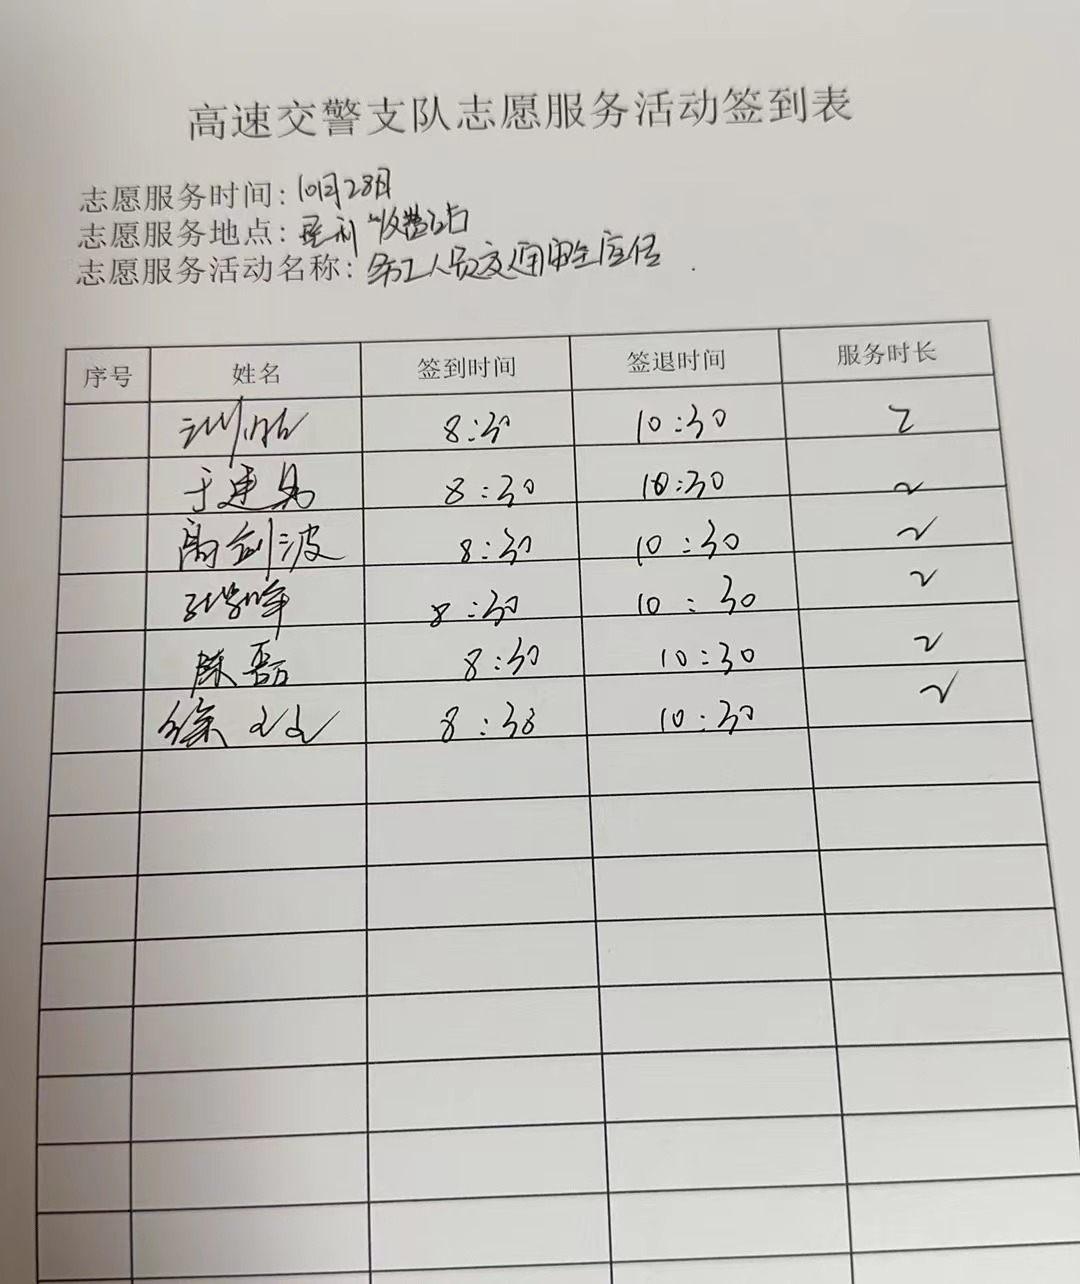 高速交警支队志愿服务活动签到表
志愿服务时间：10月28日
志愿服务地点：垦利收费站
志愿服务活动名称：务工人员交通安全宣传
序号 姓名 签到时间 签退时间 服务时长
8:30 10:30 2
于建 8:30 10:30 2
高剑波 8:30 10:30 2
峰 8:30 10:30 2
陈磊 8:30 10:30 2
徐 8:30 10:30 2